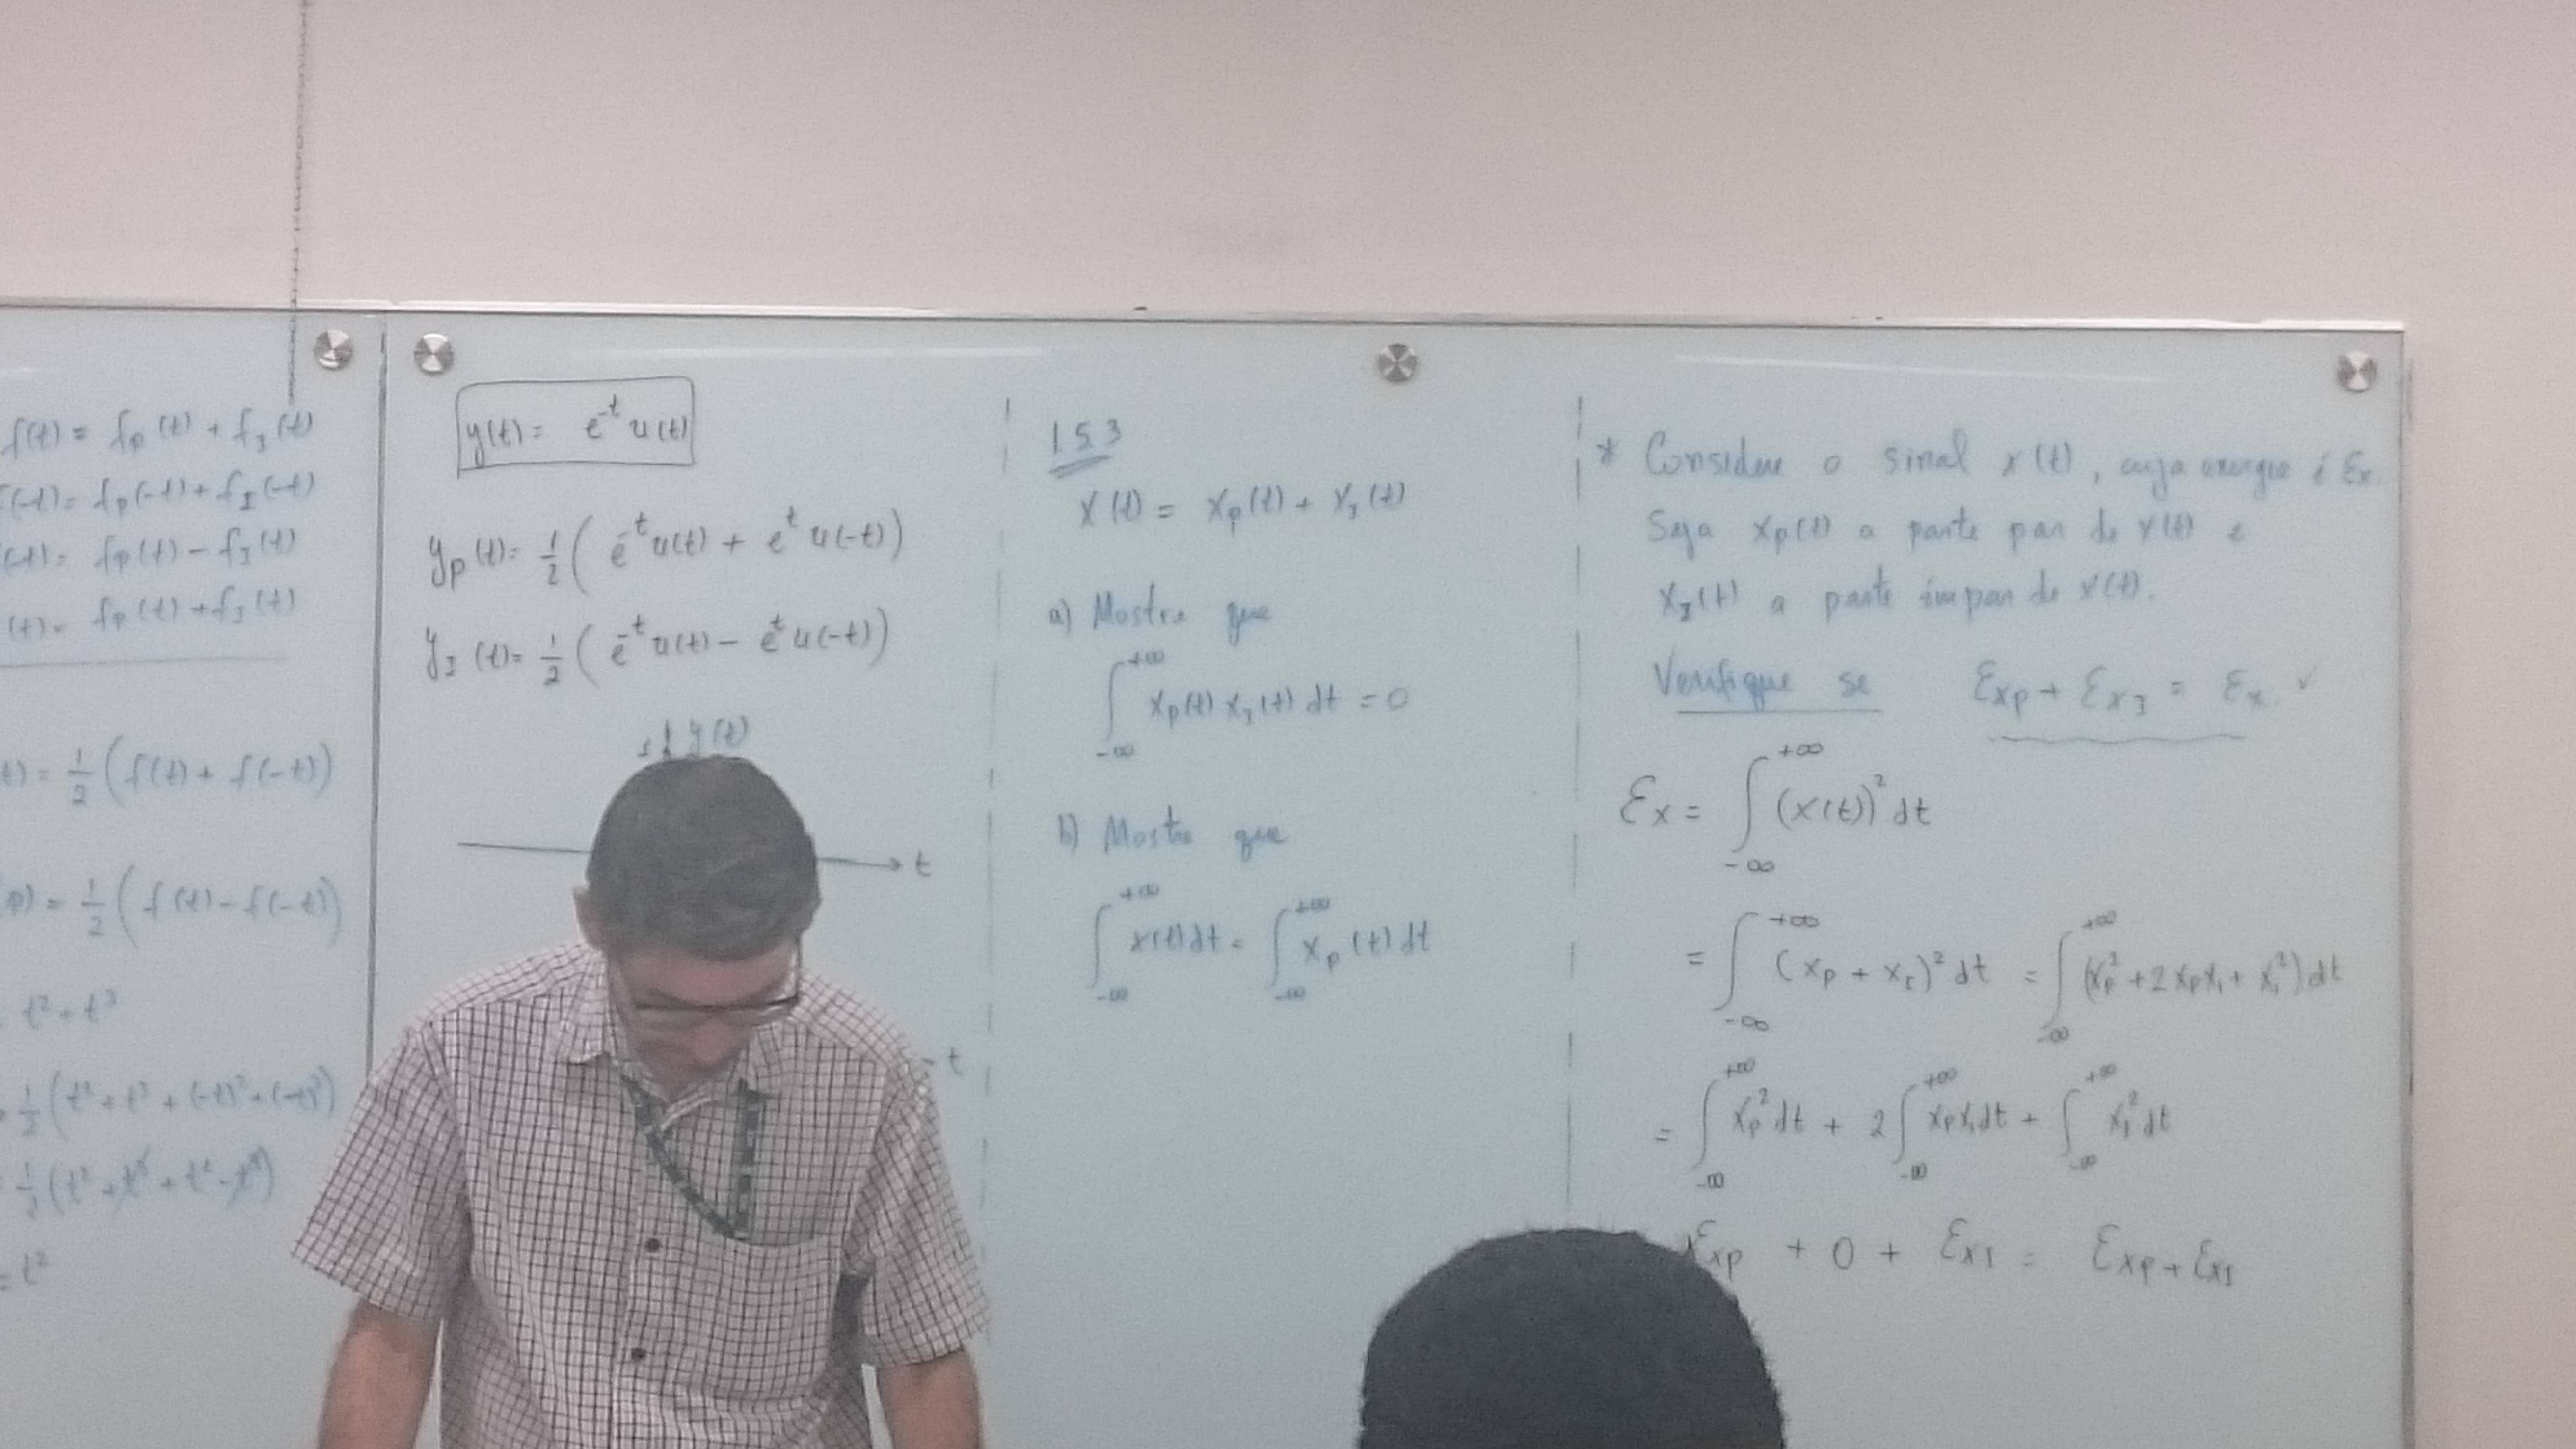 f(t) = fp(t) + fI(t)
f(-t) = fp(-t) + fI(-t)
(-t) = fp(t) - fI(t)
(t) = fp(t) + fI(t)
t) = 1/2 (f(t) + f(-t))
= 1/2 (f(t) - f(-t))
t² + t³
1/2 (t² + t³ + (-t)² + (-t)³)
1/2 (t² + t³ + t² - t³)
= t²
y(t) = e^-t u(t)
yp(t) = 1/2 (e^-t u(t) + e^t u(-t))
yI(t) = 1/2 (e^-t u(t) - e^t u(-t))
y(t)
t
t
1 5 3
x(t) = xp(t) + xI(t)
a) Mostre que
∫_-∞^+∞ xp(t) xI(t) dt = 0
b) Mostre que
∫_-∞^+∞ x(t) dt = ∫_-∞^+∞ xp(t) dt
* Considere o sinal x(t), cuja energia é Ex.
Seja xp(t) a parte par de x(t) e
xI(t) a parte ímpar de x(t).
Verifique se Exp + ExI = Ex. ✓
Ex = ∫_-∞^+∞ (x(t))² dt
= ∫_-∞^+∞ (xp + xI)² dt = ∫_-∞^+∞ (xp² + 2xpxI + xI²) dt
= ∫_-∞^+∞ xp² dt + 2∫_-∞^+∞ xpxI dt + ∫_-∞^+∞ xI² dt
Exp + 0 + ExI = Exp + ExI